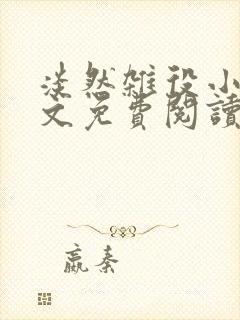 淡然雜役小
文免費閱讀
嬴秦